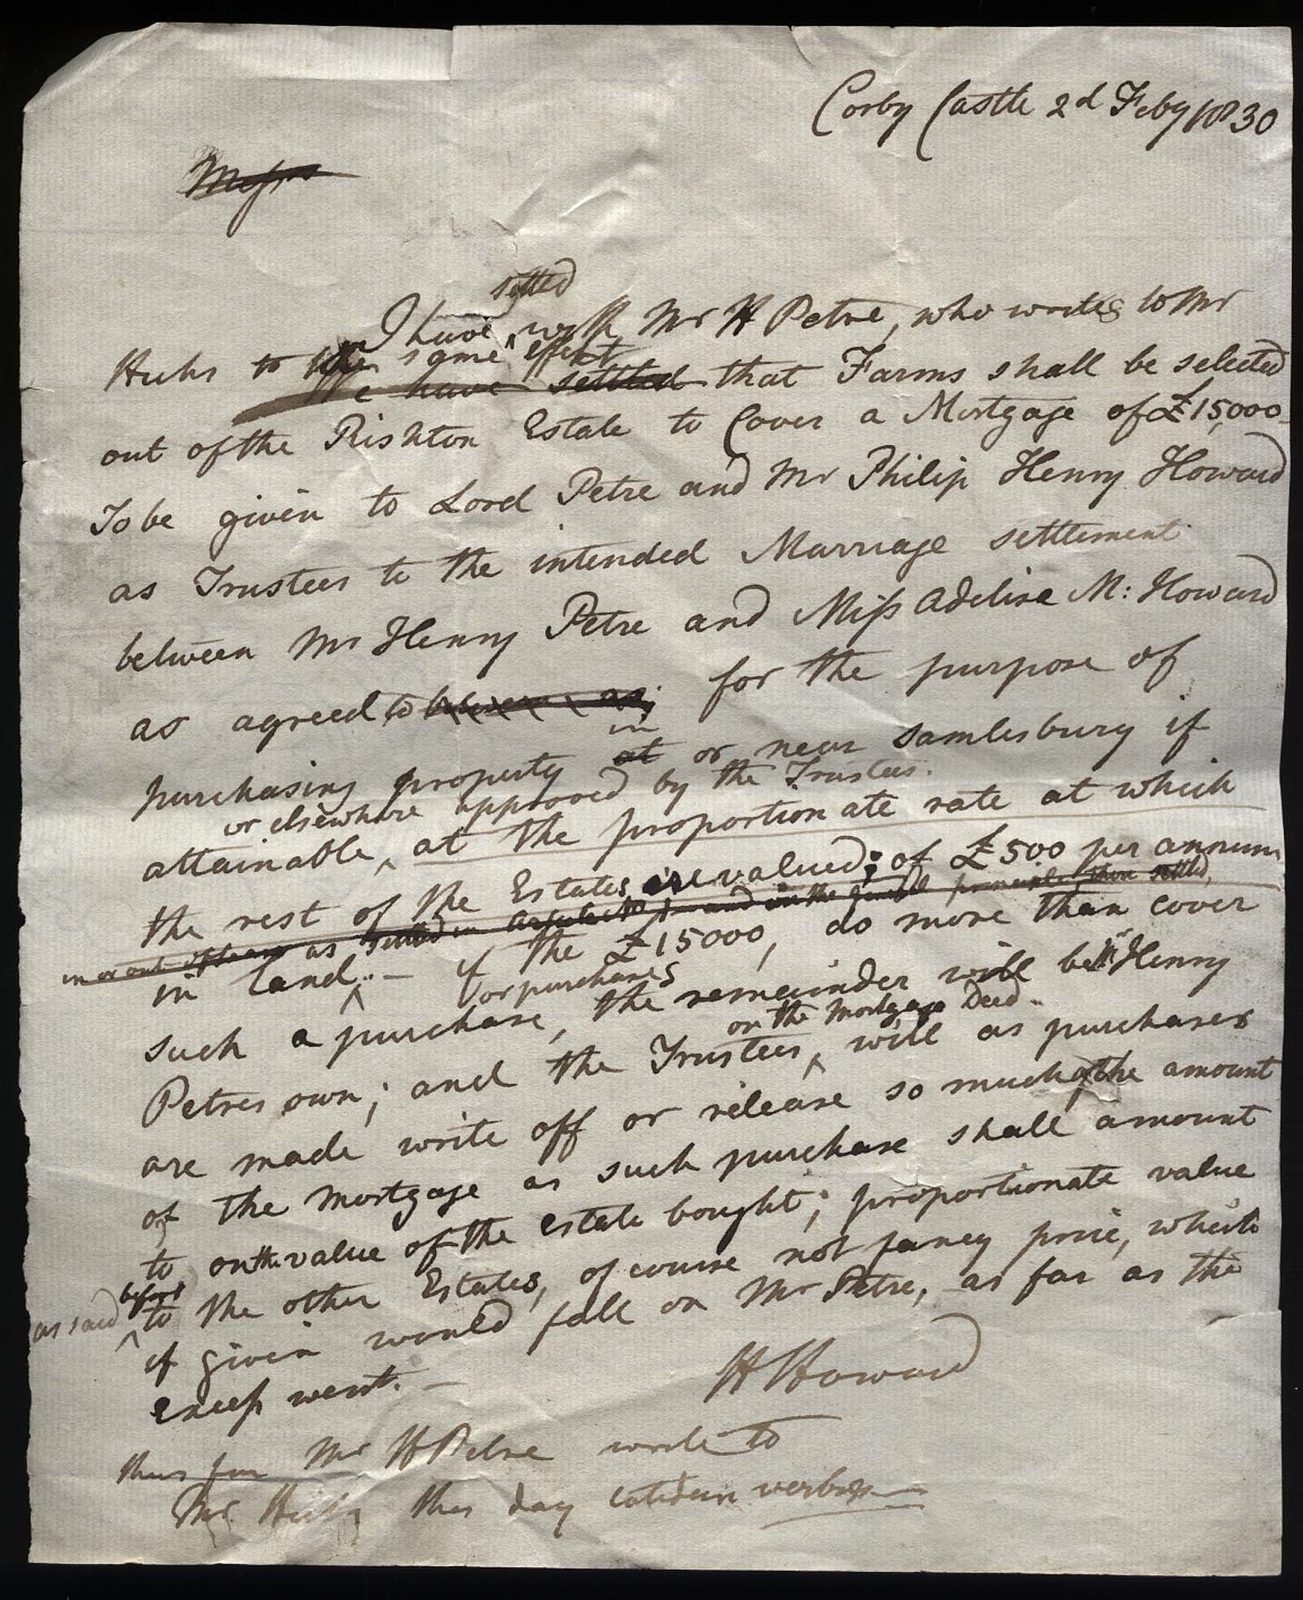 Corby Castle 2d Feby 1830
Messrs
settled
I have with Mr H Petre, who writes to Mr
Hicks to the same effect
We have settled that Farms shall be selected
out of the Rishton Estate to Cover a Mortgage of £15,000
To be given to Lord Petre and Mr Philip Henry Howard
as Trustees to the intended Marriage settlement
between Mr Henry Petre and Miss Adeliza M: Howard
as agreed to between as for the purpose of
in
purchasing property at or near Samlesbury if
or elsewhere approved by the Trustees.
attainable, at the proportionate rate at which
the rest of the Estates are valued; of £500 per annum
as settled in and in the general principle then settled,
in land. — if the £15000, do more than cover
or purchases
such a purchase, the remainder will be Mr Henry
on the Mortgage Deed
Petres own; and the Trustees, will as purchases
are made write off or release so much of the amount
of the Mortgage as such purchase shall amount
to on the value of the estate bought; proportionate value
as said before
to the other Estates, of course not fancy price, which
if given would fall on Mr Petre, as far as the
Excess went. —
H Howard
thus far Mr H Petre wrote to
Mr this day totidem verbis